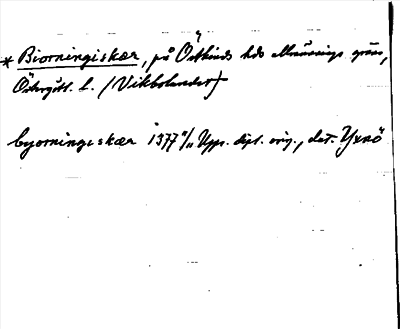 * Biorningiskær, på Östkinds hds allmännings gräns,
Östergötl. l. (Vikbolandet)
byorningeskær 1377 11/11 Upps. dipl. orig., dat. Yxnö